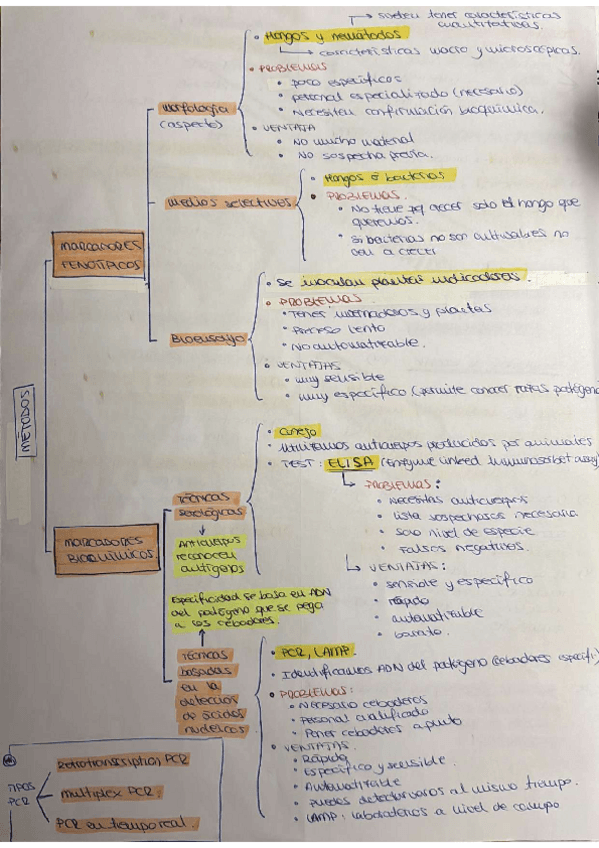 suelen tener características
cuantitativas.
• Hongos y nemátodos
características macro y microscópicas.
• PROBLEMAS
• poco específicos
• personal especializado (necesario)
• Necesiten confirmación bioquímica.
• VENTAJA
• No mucho material
• No sospecha previa.
Morfología
(aspecto)
• Hongos o bacterias
• PROBLEMAS.
• No tiene pq crecer solo el hongo que
queremos.
• Si bacterias no son cultivables no
van a crecer
Medios selectivos
MARCADORES
FENOTÍPICOS
• Se inoculan plantas indicadoras.
• PROBLEMAS
• Tener invernaderos y plantas
• Proceso lento
• No automatizable.
• VENTAJAS
• muy sensible
• muy específico (permite conocer razas patógeno
Bioensayo
MÉTODOS
• Conejo
• Utilizamos anticuerpos producidos por animales
• TEST: ELISA (Enzyme linked Immunosorbet assay)
PROBLEMAS:
• Necesitas anticuerpos
• lista sospechosos necesaria
• solo nivel de especie
• Falsos negativos.
VENTAJAS:
• sensible y específico
• rápido
• automatizable
• barato.
TÉCNICAS
serológicas
Anticuerpos
reconocen
antígenos
MARCADORES
BIOQUÍMICOS
Especificidad se basa en ADN
del patógeno que se pega
a los cebadores.
TÉCNICAS
basadas
en la
detección
de ácidos
nucleicos
• PCR, LAMP.
• Identificamos ADN del patógeno (cebadores específi
• PROBLEMAS:
• Necesario cebadores
• Personal cualificado
• Poner cebadores a punto
• VENTAJAS.
• Rápido
• Específico y sensible.
• Automatizable
• Puedes detectar varios al mismo tiempo.
• LAMP: laboratorios a nivel de campo
TIPOS
PCR
Retrotranscription PCR
multiplex PCR.
PCR en tiempo real.